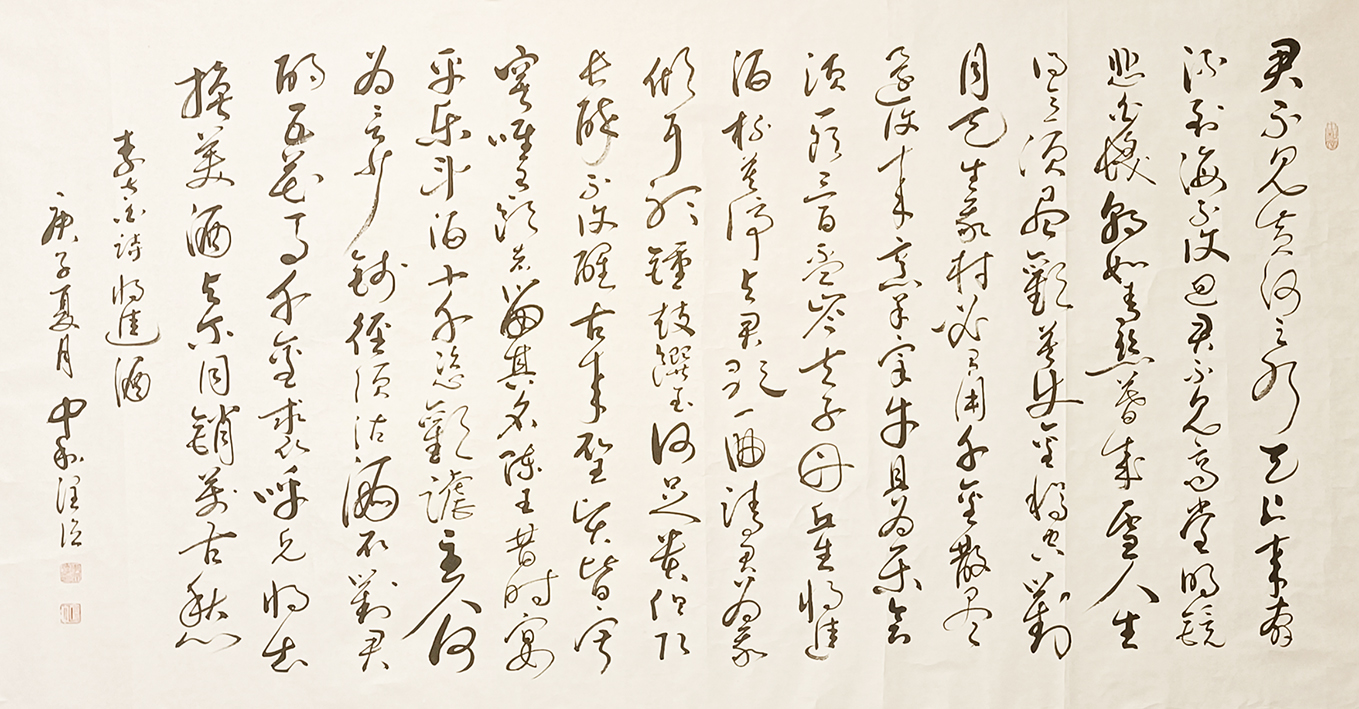 君不见黄河之水天上来奔
流到海不复回君不见高堂明镜
悲白发朝如青丝暮成雪人生
得意须尽欢莫使金樽空对
月天生我材必有用千金散尽
还复来烹羊宰牛且为乐会
须一饮三百杯岑夫子丹丘生将进
酒杯莫停与君歌一曲请君为我
倾耳听钟鼓馔玉何足贵但愿
长醉不复醒古来圣贤皆寂
寞唯有饮者留其名陈王昔时宴
平乐斗酒十千恣欢谑主人何
为言少钱径须沽酒不对君
酌五花马千金裘呼儿将出
换美酒与尔同销万古愁
李太白诗将进酒
庚子夏月